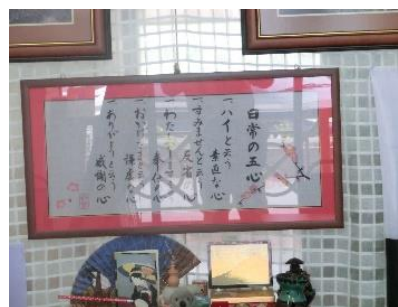 日常の五心
一、ハイと云う
素直な心
一、すみませんと云う
反省の心
一、わたしが
奉仕の心
一、おかげさまと云う
謙虚な心
一、ありがとうと云う
感謝の心